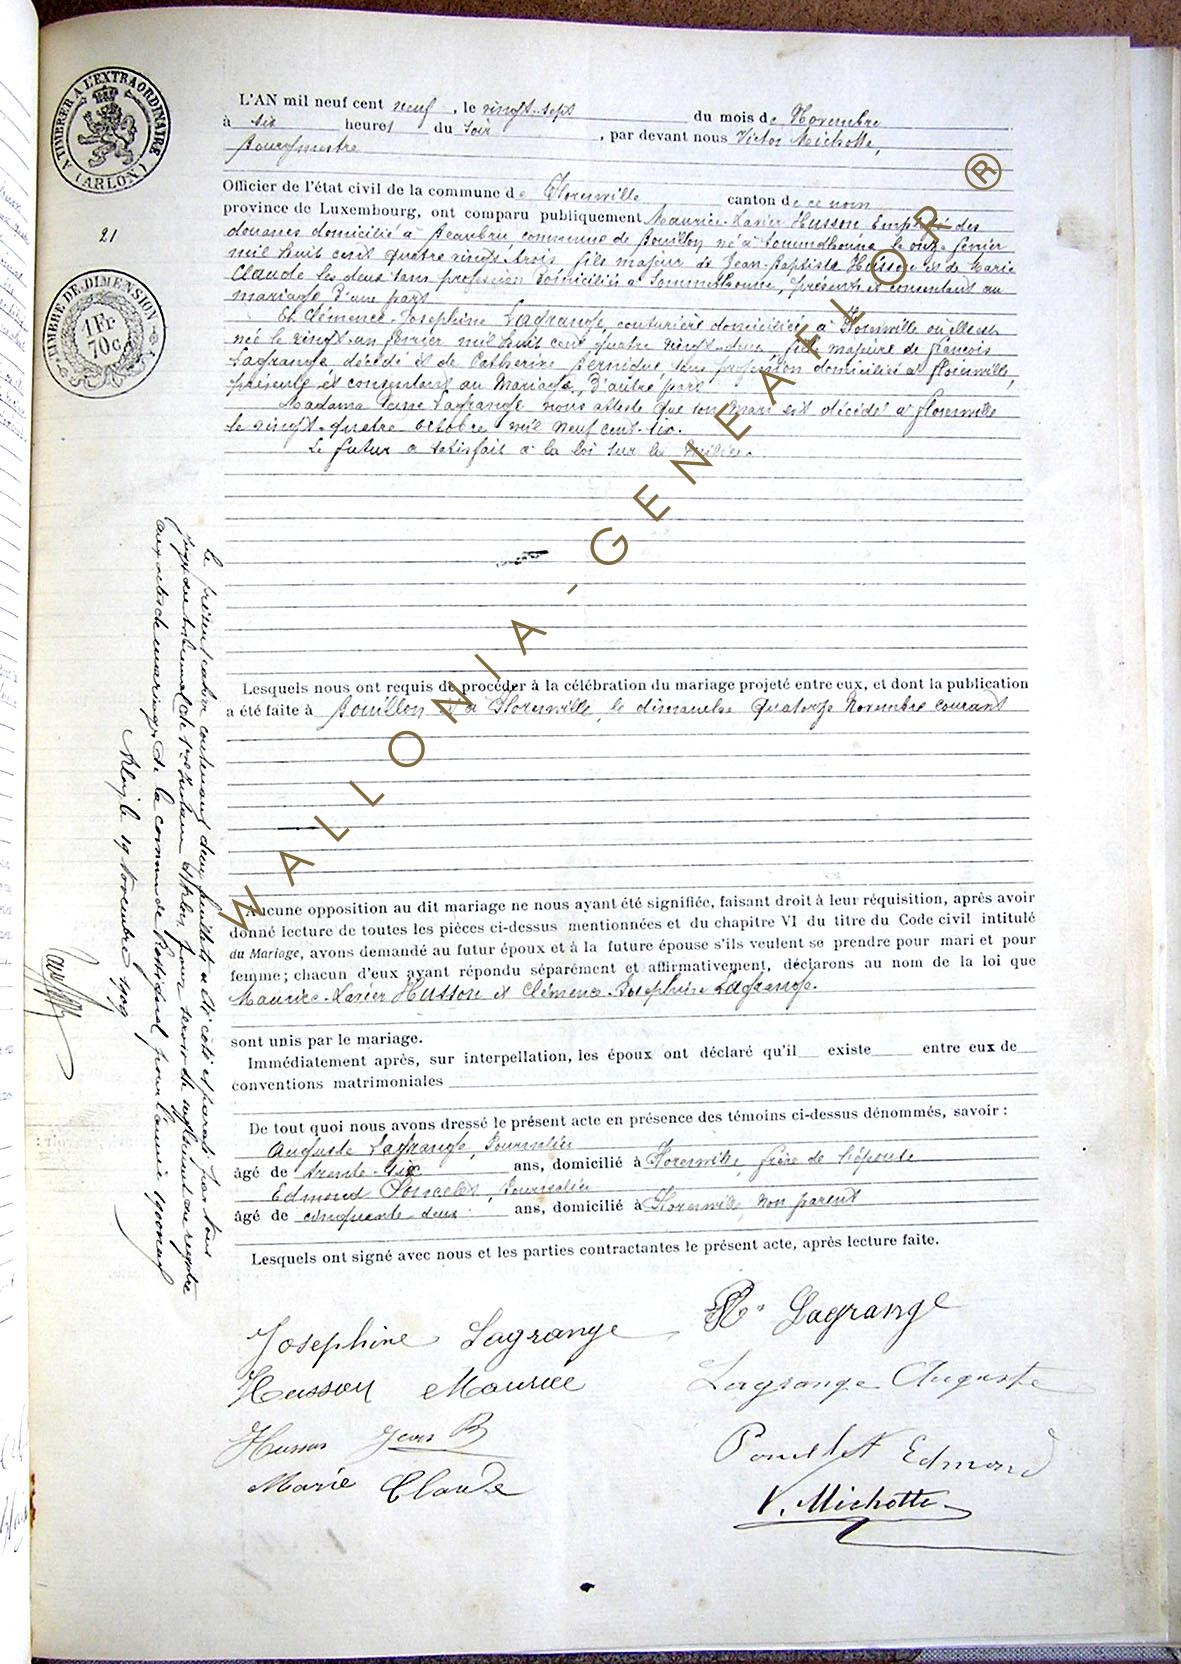 A TIMBRER A L'EXTRAORDINAIRE
(ARLON)
21
TIMBRE DE DIMENSION
1 Fr
70c
L'AN mil neuf cent neuf, le vingt-sept du mois de Novembre
à six heures du soir, par devant nous Victor Michotte,
Bourgmestre
Officier de l'état civil de la commune de Florenville canton de ce nom
province de Luxembourg, ont comparu publiquement Maurice-Xavier Husson Employé des
douanes domicilié à Beaubru commune de Bouillon né à Sommethonne le onze février
mil huit cent quatre vingt trois fils majeur de Jean-Baptiste Husson et de Marie
Claude les deux sans profession domiciliés à Sommethonne, présents et consentant au
mariage d'une part
Et Clémence-Josephine Lagrange, couturière domiciliée à Florenville où elle est
née le vingt-un février mil huit cent quatre vingt-deux fille majeure de François
Lagrange, décédé et de Catherine sans profession domiciliée à Florenville,
présente et consentant au Mariage, d'autre part
Madame Lagrange nous atteste que son mari est décédé à Florenville
le vingt-quatre octobre mil neuf cent six.
Le futur a satisfait à la loi sur la milice.
Lesquels nous ont requis de procéder à la célébration du mariage projeté entre eux, et dont la publication
a été faite à Bouillon et à Florenville, le dimanche quatorze Novembre courant
Aucune opposition au dit mariage ne nous ayant été signifiée, faisant droit à leur réquisition, après avoir
donné lecture de toutes les pièces ci-dessus mentionnées et du chapitre VI du titre du Code civil intitulé
du Mariage, avons demandé au futur époux et à la future épouse s'ils veulent se prendre pour mari et pour
femme; chacun d'eux ayant répondu séparément et affirmativement, déclarons au nom de la loi que
Maurice-Xavier Husson et Clémence-Josephine Lagrange.
sont unis par le mariage.
Immédiatement après, sur interpellation, les époux ont déclaré qu'il existe entre eux de
conventions matrimoniales
De tout quoi nous avons dressé le présent acte en présence des témoins ci-dessus dénommés, savoir :
Auguste Lagrange, Journalier
âgé de trente-six ans, domicilié à Florenville, frère de l'épouse
Edmond Poncelet, Journalier
âgé de cinquante-deux ans, domicilié à Florenville, non parent
Lesquels ont signé avec nous et les parties contractantes le présent acte, après lecture faite.
Josephine Lagrange
Lagrange
Husson Maurice
Lagrange Auguste
Husson Jean B
Edmond
Marie Claude
V. Michotte
Le présent cahier contenant deux feuillets a été coté et paraphé par nous
juge au tribunal de 1re instance d'Arlon, pour servir de supplément au registre
aux actes de mariage de la commune de pour l'année 1900 neuf
Arlon, le 19 novembre 1909
WALLONIA-GENEAFLOR ®